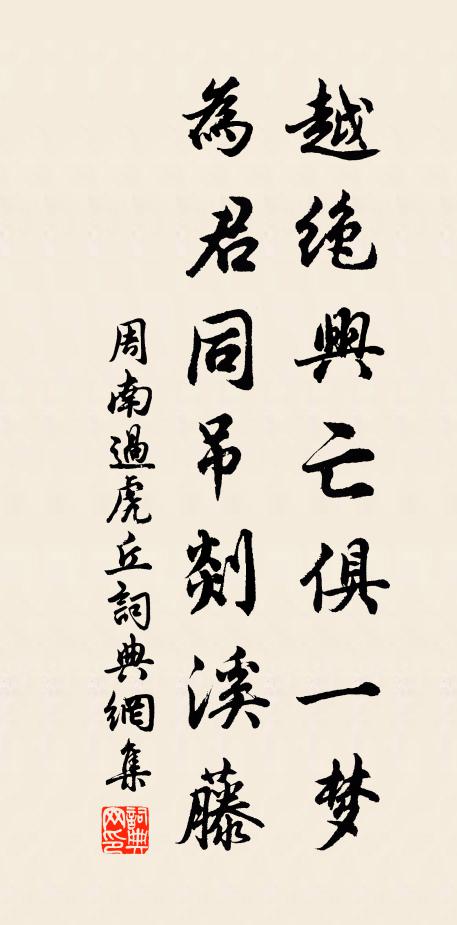 越絶興亡俱一梦
為君同吊剡溪藤
周南過虎丘詞典網集
詞典網印